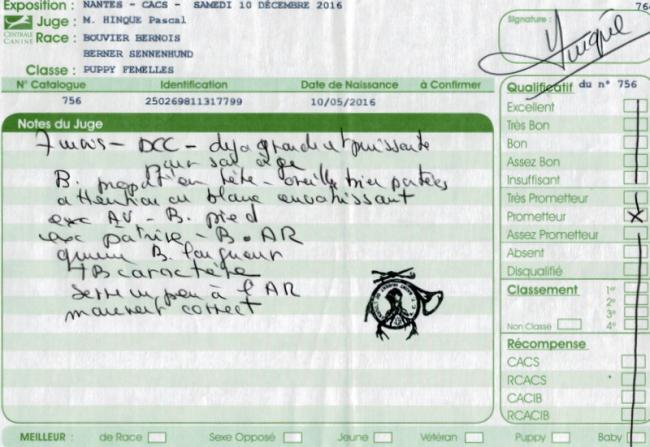 Exposition : NANTES - CACS - SAMEDI 10 DÉCEMBRE 2016
Juge : M. HINQUE Pascal
CENTRALE CANINE
Race : BOUVIER BERNOIS
BERNER SENNENHUND
Classe : PUPPY FEMELLES
N° Catalogue Identification Date de Naissance à Confirmer
756 250269811317799 10/05/2016
Notes du Juge
7 mois - DCC - deja grande et puissante
pour son age
B. propot° en tête - oreilles bien portées
attention au blanc envahissant
exc AV - B. pied
exc poitrine - B. AR
queue B. longueur
TB caractère
serre un peu à l'AR
mouvent correct
Signature :
Qualificatif du n° 756
Excellent
Très Bon
Bon
Assez Bon
Insuffisant
Très Prometteur
Prometteur X
Assez Prometteur
Absent
Disqualifié
Classement 1er
2e
3e
Non Classé 4e
Récompense
CACS
RCACS
CACIB
RCACIB
MEILLEUR : de Race Sexe Opposé Jeune Vétéran Puppy Baby